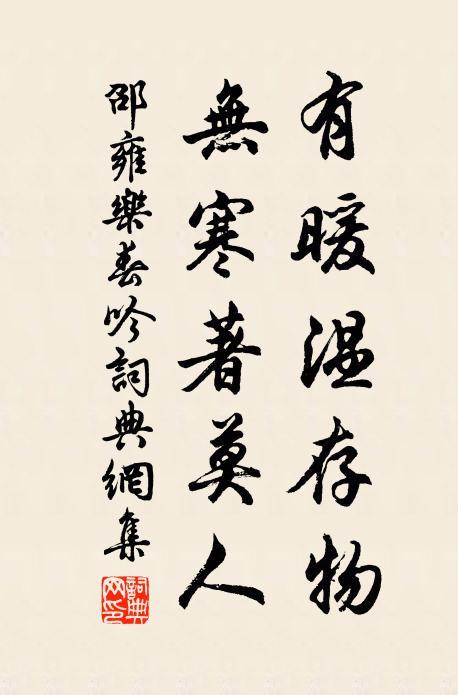 有暖温存物
無寒著莫人
邵雍樂春吟詞典網集
詞典网印